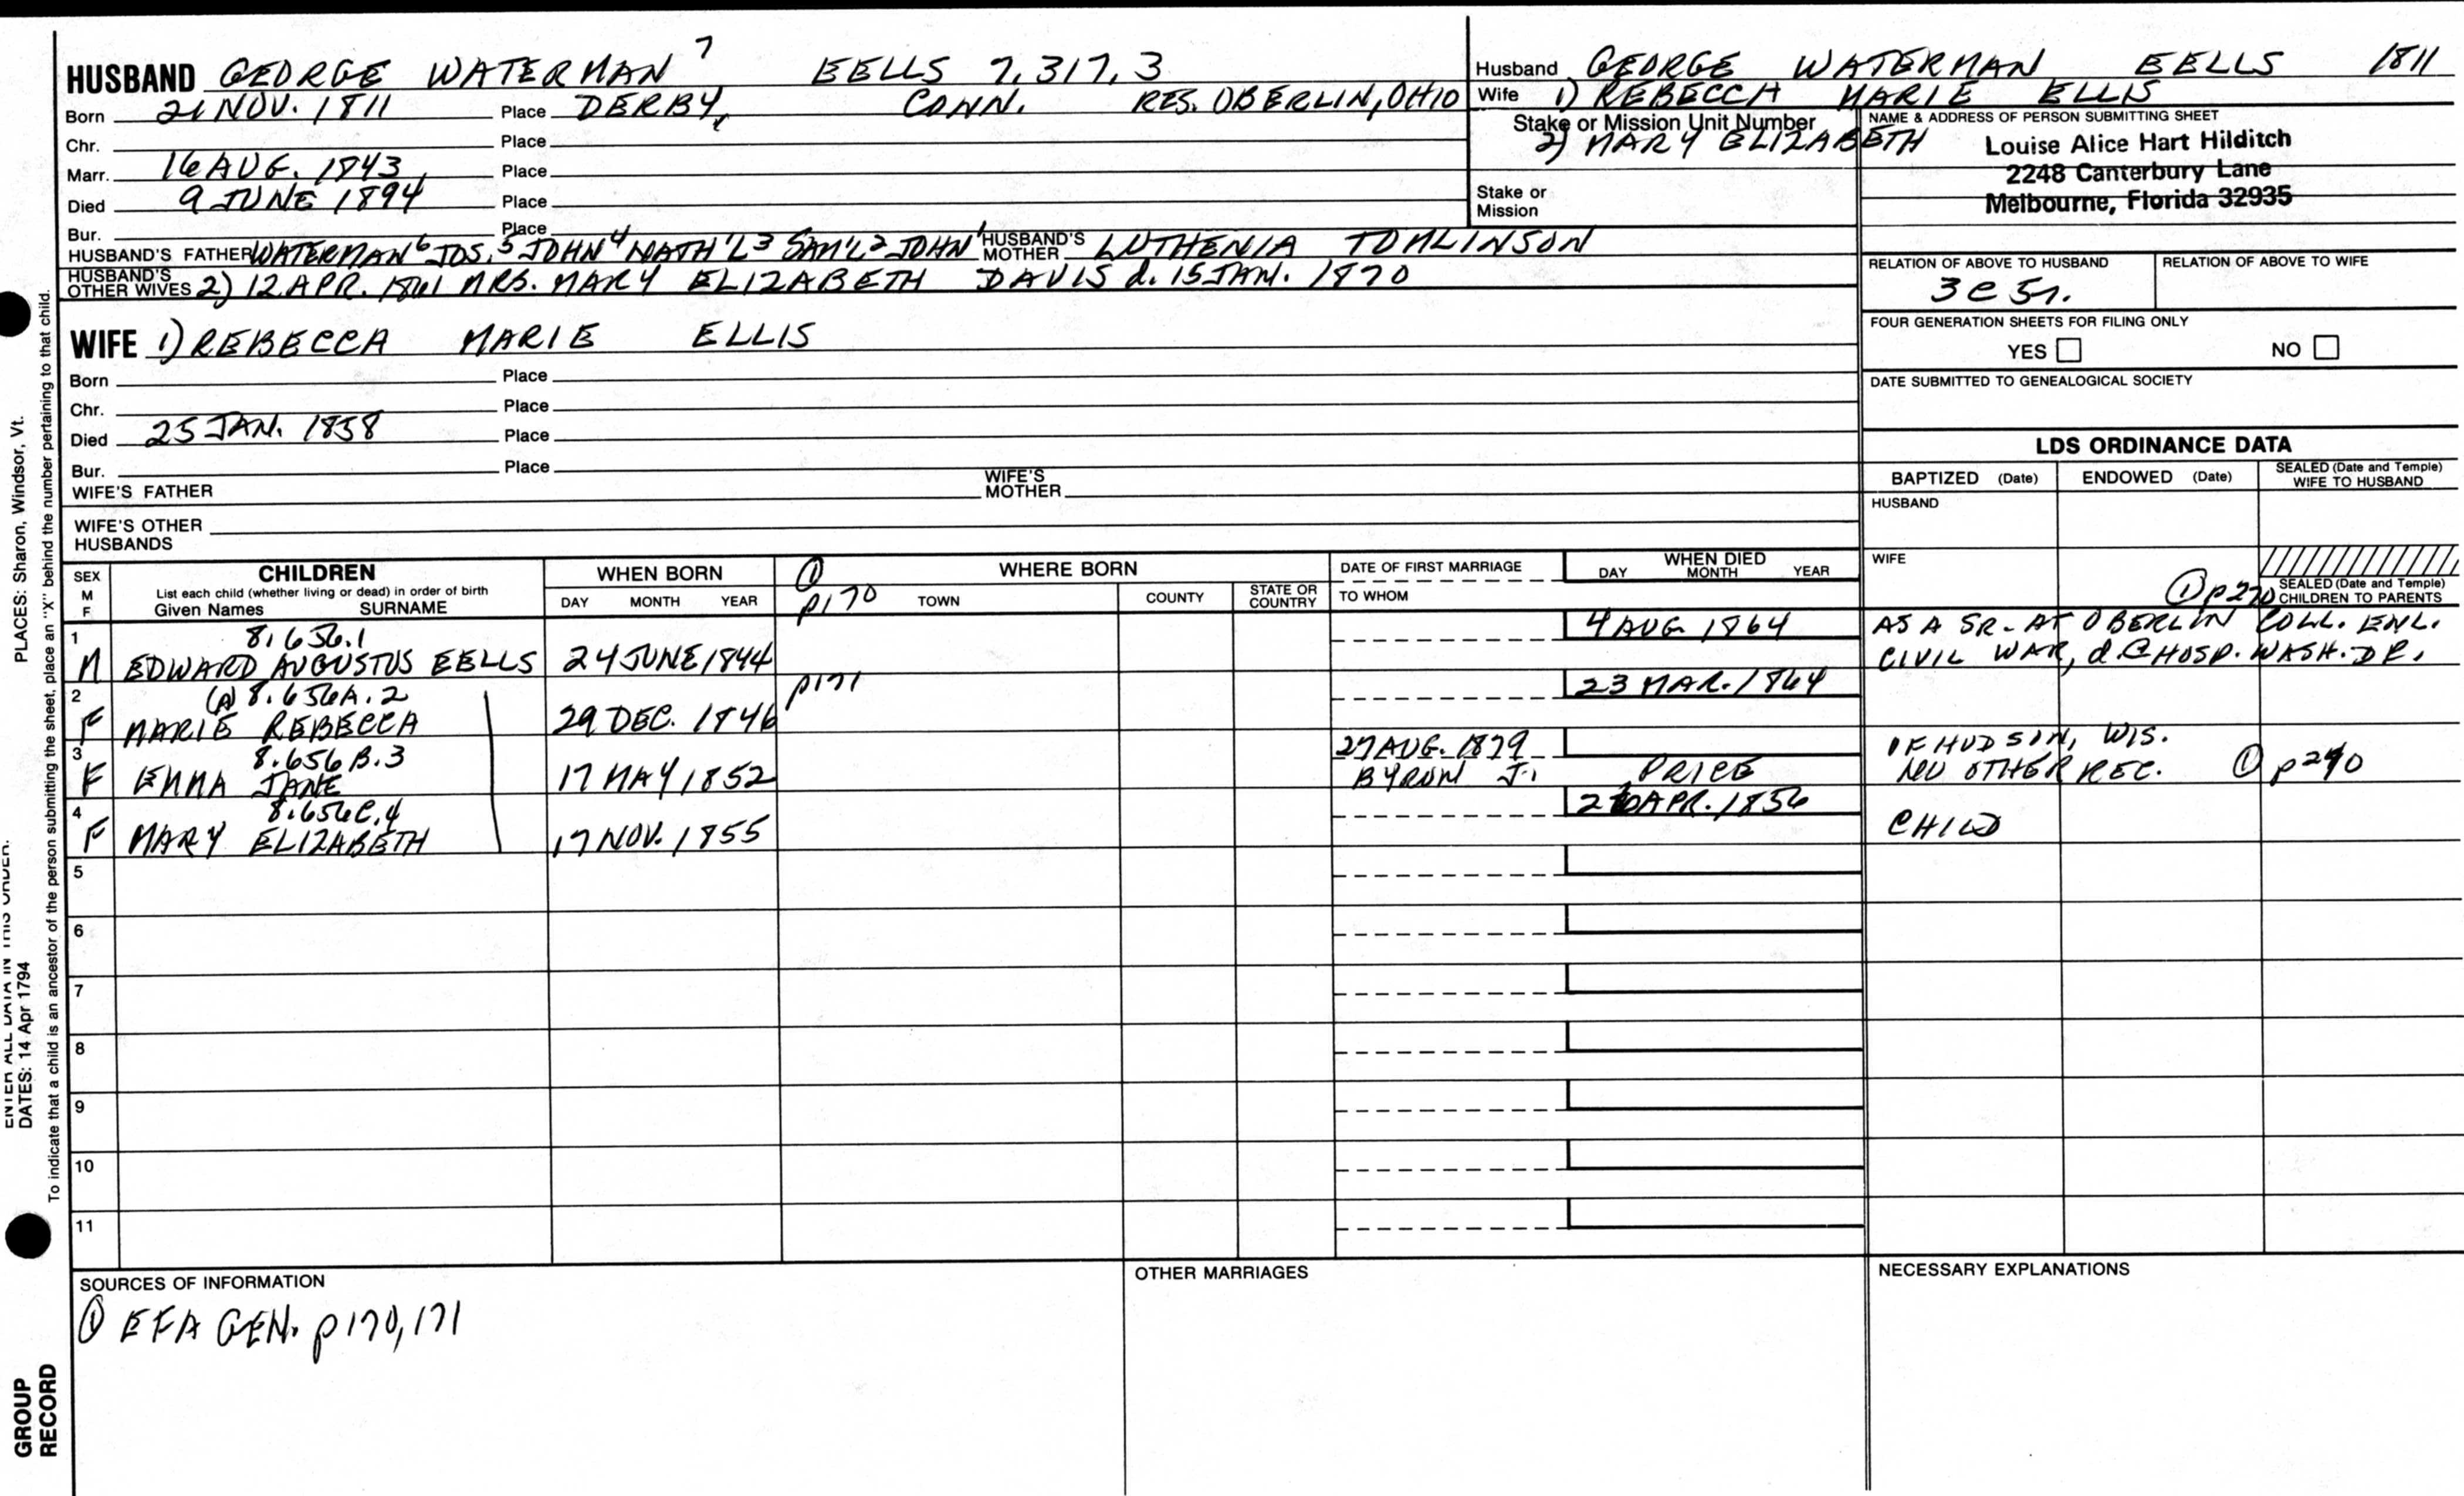 HUSBAND GEORGE WATERMAN 7 EELLS 7.317.3
Born 21 NOV. 1811 Place DERBY, CONN. RES. OBERLIN, OHIO
Chr. Place
Marr. 16 AUG. 1843 Place
Died 9 JUNE 1894 Place
Bur. Place
HUSBAND'S FATHER WATERMAN 6 JOS. 5 JOHN 4 NATH'L 3 SAM'L 2 JOHN 1 HUSBAND'S MOTHER LUTHENIA TOMLINSON
HUSBAND'S OTHER WIVES 2) 12 APR. 1861 MRS. MARY ELIZABETH DAVIS d. 15 JAN. 1870
Husband GEORGE WATERMAN EELLS 1811
Wife 1) REBECCA MARIE ELLIS
Stake or Mission Unit Number
2) MARY ELIZABETH
Stake or
Mission
NAME & ADDRESS OF PERSON SUBMITTING SHEET
Louise Alice Hart Hilditch
2248 Canterbury Lane
Melbourne, Florida 32935
RELATION OF ABOVE TO HUSBAND RELATION OF ABOVE TO WIFE
3C5r.
FOUR GENERATION SHEETS FOR FILING ONLY
YES NO
DATE SUBMITTED TO GENEALOGICAL SOCIETY
WIFE 1) REBECCA MARIE ELLIS
Born Place
Chr. Place
Died 25 JAN. 1858 Place
Bur. Place
WIFE'S FATHER WIFE'S MOTHER
WIFE'S OTHER
HUSBANDS
LDS ORDINANCE DATA
BAPTIZED (Date) ENDOWED (Date) SEALED (Date and Temple) WIFE TO HUSBAND
HUSBAND
WIFE
① p270 SEALED (Date and Temple) CHILDREN TO PARENTS
SEX M F CHILDREN WHEN BORN ① WHERE BORN DATE OF FIRST MARRIAGE WHEN DIED
List each child (whether living or dead) in order of birth
Given Names SURNAME DAY MONTH YEAR p170 TOWN COUNTY STATE OR COUNTRY TO WHOM DAY MONTH YEAR
1 8.656.1 4 AUG 1864 AS A SR. AT OBERLIN COLL. ENL.
M EDWARD AUGUSTUS EELLS 24 JUNE 1844 CIVIL WAR, d. @ HOSP. WASH. DC.
2 (A) 8.656A.2 p171 23 MAR. 1864
F MARIE REBECCA 29 DEC. 1846
3 8.656B.3 27 AUG. 1879 OF HUDSON, WIS.
F EMMA JANE 17 MAY 1852 BYRON J. PRICE NO OTHER REC. ① p290
4 8.656C.4 APR. 1856
F MARY ELIZABETH 17 NOV. 1855 CHILD
5
6
7
8
9
10
11
SOURCES OF INFORMATION OTHER MARRIAGES NECESSARY EXPLANATIONS
① EFA GEN. p170, 171
PLACES: Sharon, Windsor, Vt.
ENTER ALL DATA IN THIS ORDER:
DATES: 14 Apr 1794
To indicate that a child is an ancestor of the person submitting the sheet, place an "X" behind the number pertaining to that child.
GROUP
RECORD